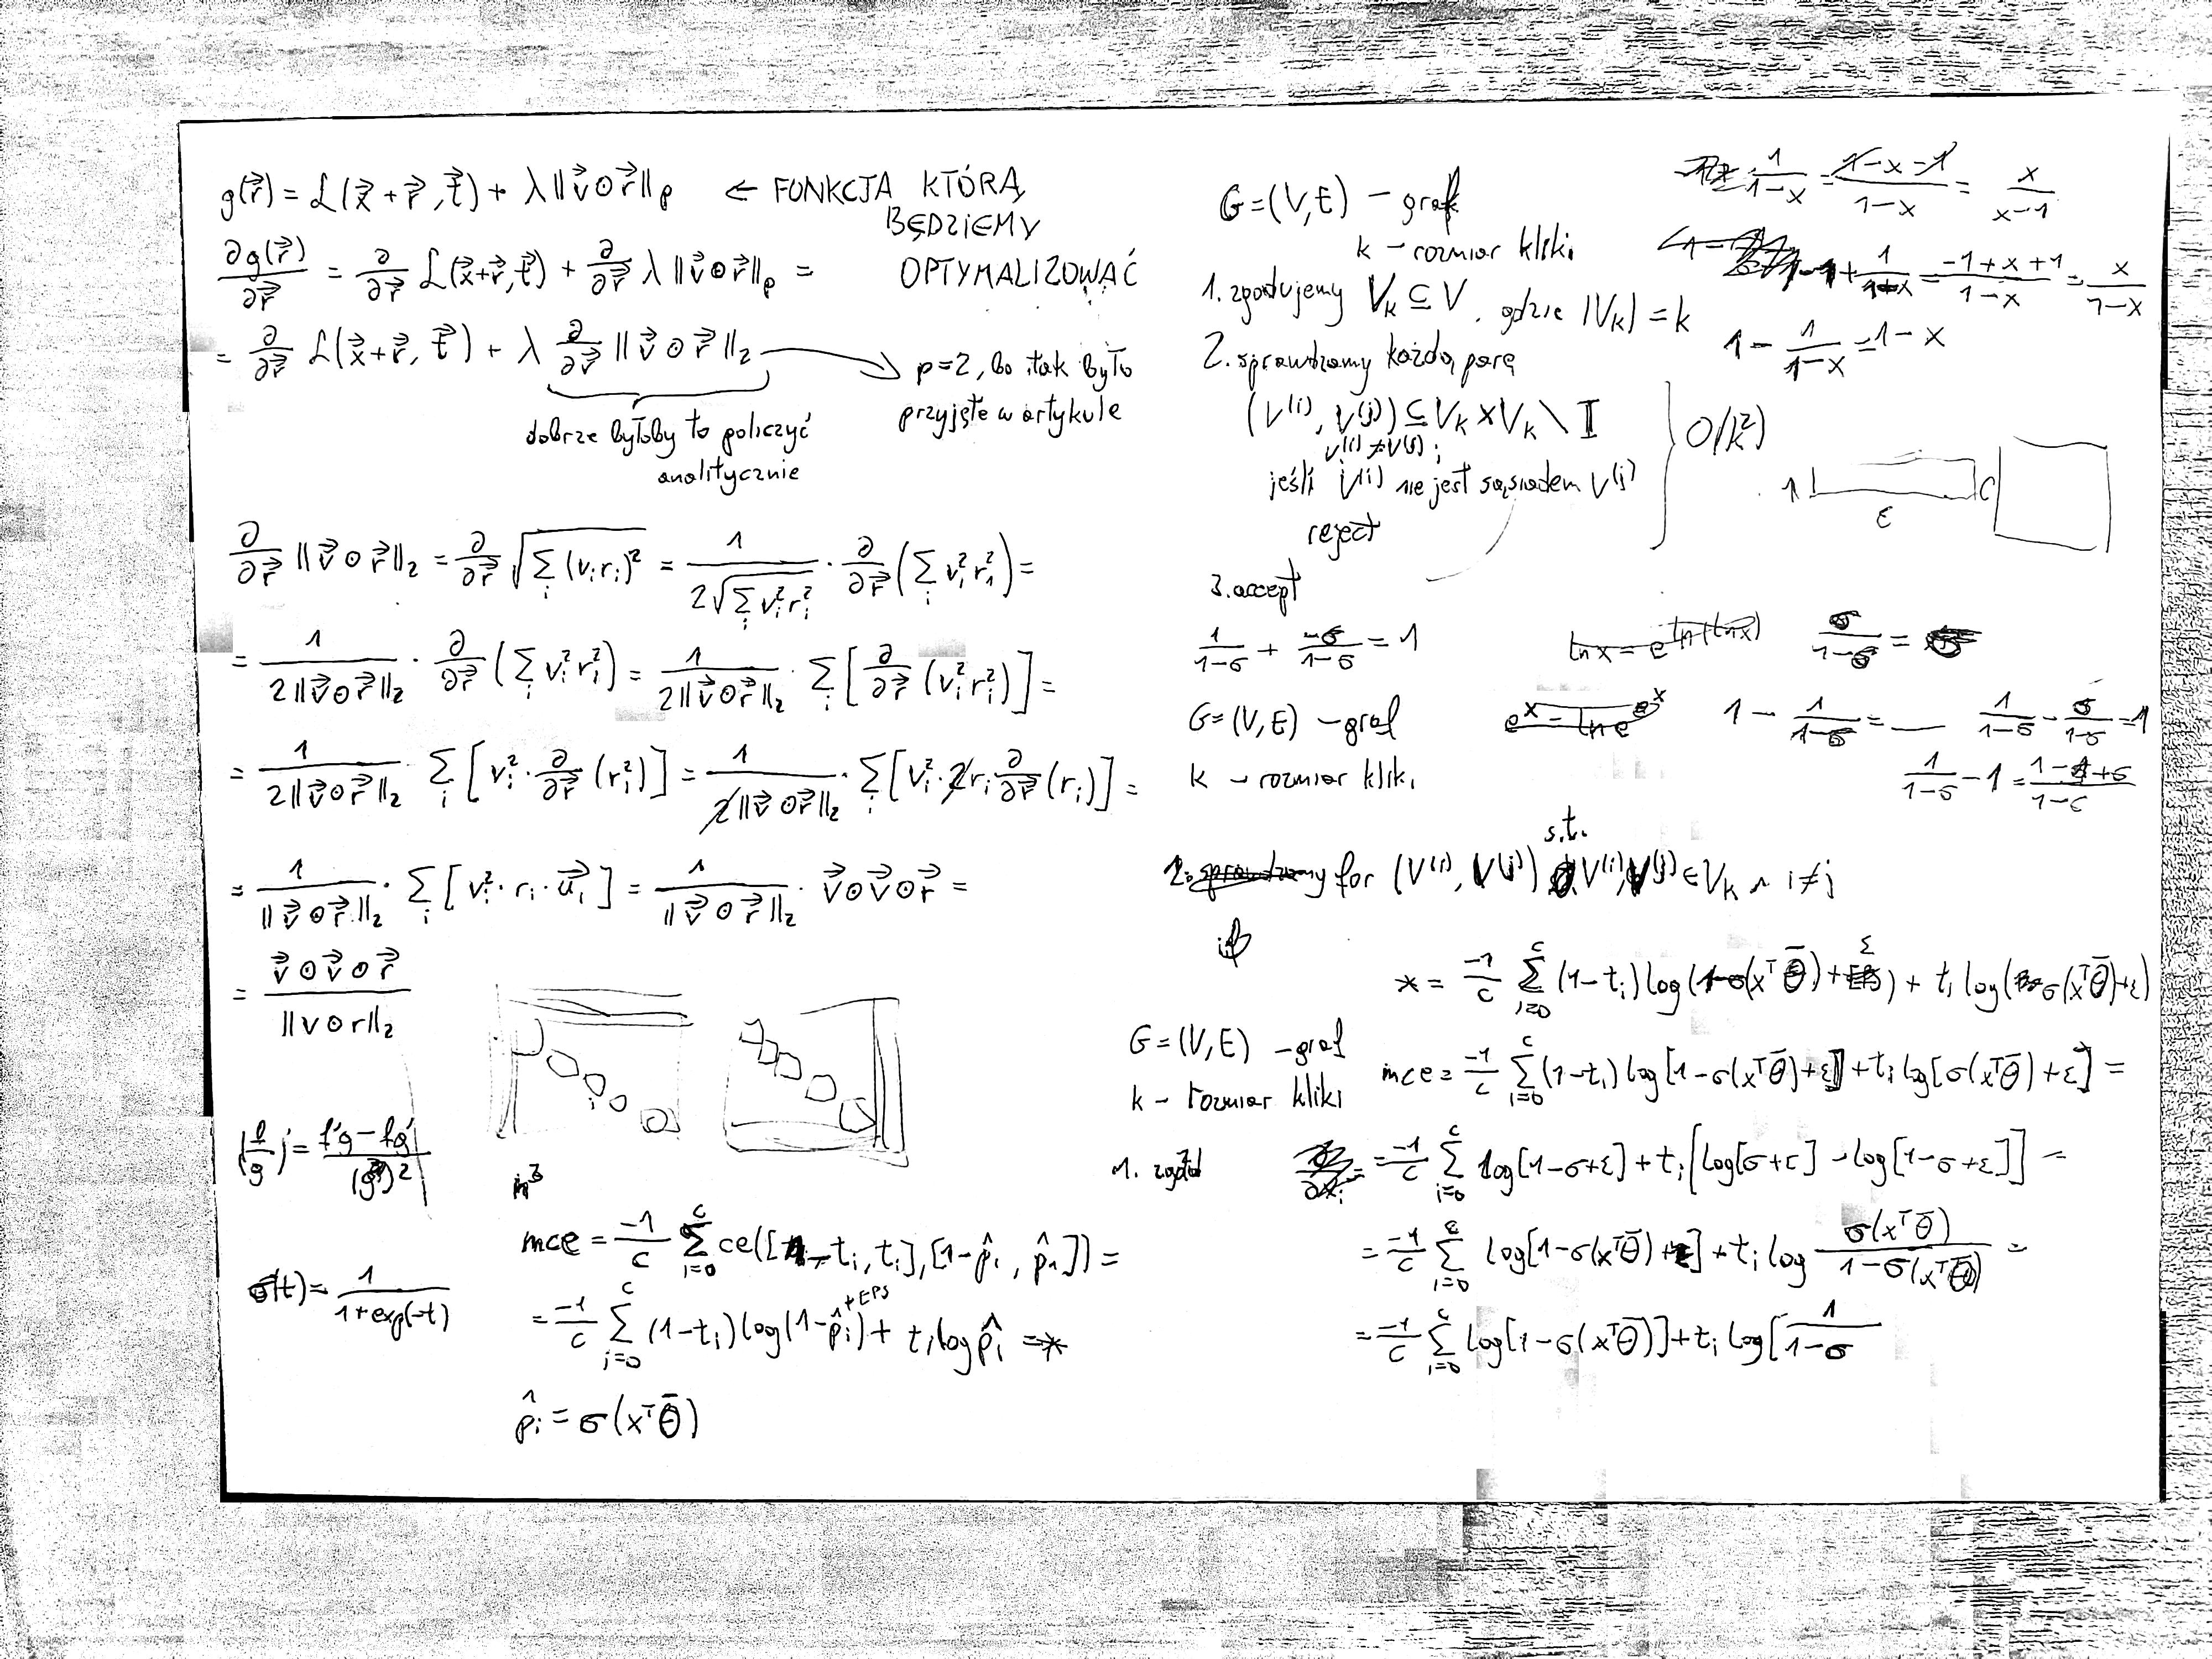 g(r⃗) = ℒ(x⃗ + r⃗, t⃗) + λ ||v⃗ ⊙ r⃗||ₚ ← FUNKCJA KTÓRĄ
BĘDZIEMY
OPTYMALIZOWAĆ
∂g(r⃗)/∂r⃗ = ∂/∂r⃗ ℒ(x⃗+r⃗, t⃗) + ∂/∂r⃗ λ ||v⃗ ⊙ r⃗||ₚ =
= ∂/∂r⃗ ℒ(x⃗+r⃗, t⃗) + λ ∂/∂r⃗ ||v⃗ ⊙ r⃗||₂
p=2, bo tak było
przyjęte w artykule
dobrze byłoby to policzyć
analitycznie
∂/∂r⃗ ||v⃗ ⊙ r⃗||₂ = ∂/∂r⃗ √(∑ᵢ (vᵢrᵢ)²) = 1/(2√(∑ᵢ vᵢ²rᵢ²)) · ∂/∂r⃗ (∑ᵢ vᵢ²rᵢ²) =
= 1/(2||v⃗ ⊙ r⃗||₂) · ∂/∂r⃗ (∑ᵢ vᵢ²rᵢ²) = 1/(2||v⃗ ⊙ r⃗||₂) · ∑ᵢ [∂/∂r⃗ (vᵢ²rᵢ²)] =
= 1/(2||v⃗ ⊙ r⃗||₂) · ∑ᵢ [vᵢ² · ∂/∂r⃗ (rᵢ²)] = 1/(2||v⃗ ⊙ r⃗||₂) · ∑ᵢ [vᵢ² · 2rᵢ ∂/∂r⃗ (rᵢ)] =
= 1/(||v⃗ ⊙ r⃗||₂) · ∑ᵢ [vᵢ² · rᵢ · u⃗ᵢ] = 1/(||v⃗ ⊙ r⃗||₂) · v⃗ ⊙ v⃗ ⊙ r⃗ =
= (v⃗ ⊙ v⃗ ⊙ r⃗)/(||v ⊙ r||₂)
(f/g)' = (f'g − fg')/(g)²
σ(t) = 1/(1+exp(−t))
mce = −1/c ∑ᵢ₌₀ᶜ ce([1−tᵢ, tᵢ], [1−p̂ᵢ, p̂ᵢ]) =
= −1/c ∑ᵢ₌₀ᶜ (1−tᵢ) log(1−p̂ᵢ+EPS) + tᵢ log p̂ᵢ = *
p̂ᵢ = σ(xᵀθ̄)
G=(V,E) – graf
k – rozmiar kliki
1. zgadujemy Vₖ ⊆ V, gdzie |Vₖ| = k
2. sprawdzamy każdą parę
(v⁽ⁱ⁾, v⁽ʲ⁾) ⊆ Vₖ × Vₖ \ I
v⁽ⁱ⁾ ≠ v⁽ʲ⁾;
jeśli v⁽ⁱ⁾ nie jest sąsiadem v⁽ʲ⁾
reject
O(k²)
3. accept
1/(1−x) = (1−x−1)/(1−x) = x/(x−1)
−1+1/(1−x) = (−1+x+1)/(1−x) = x/(1−x)
1 − 1/(1−x) = 1−x
1
ε
C
1/(1−σ) + −σ/(1−σ) = 1
ln x = e^(ln(ln x))
σ/(1−σ) =
G=(V,E) – graf
k – rozmiar kliki
eˣ = ln e^eˣ
1 − 1/(1−σ) =
1/(1−σ) − σ/(1−σ) = 1
1/(1−σ) − 1 = (1−1+σ)/(1−σ)
2. sprawdzamy for (V⁽ⁱ⁾, V⁽ʲ⁾) s.t. V⁽ⁱ⁾, V⁽ʲ⁾ ∈ Vₖ ∧ i≠j
if
* = −1/c ∑ᵢ₌₀ᶜ (1−tᵢ) log(1−σ(xᵀθ̄)+ε) + tᵢ log(σ(xᵀθ̄)+ε)
G=(V,E) – graf
k – rozmiar kliki
1. zgad
mce = −1/c ∑ᵢ₌₀ᶜ (1−tᵢ) log[1−σ(xᵀθ̄)+ε] + tᵢ log[σ(xᵀθ̄)+ε] =
= −1/c ∑ᵢ₌₀ᶜ log[1−σ+ε] + tᵢ[log[σ+ε] − log[1−σ+ε]] =
= −1/c ∑ᵢ₌₀ᶜ log[1−σ(xᵀθ̄)+ε] + tᵢ log σ(xᵀθ̄)/(1−σ(xᵀθ̄)) =
= −1/c ∑ᵢ₌₀ᶜ log[1−σ(xᵀθ̄)] + tᵢ log[1/(1−σ